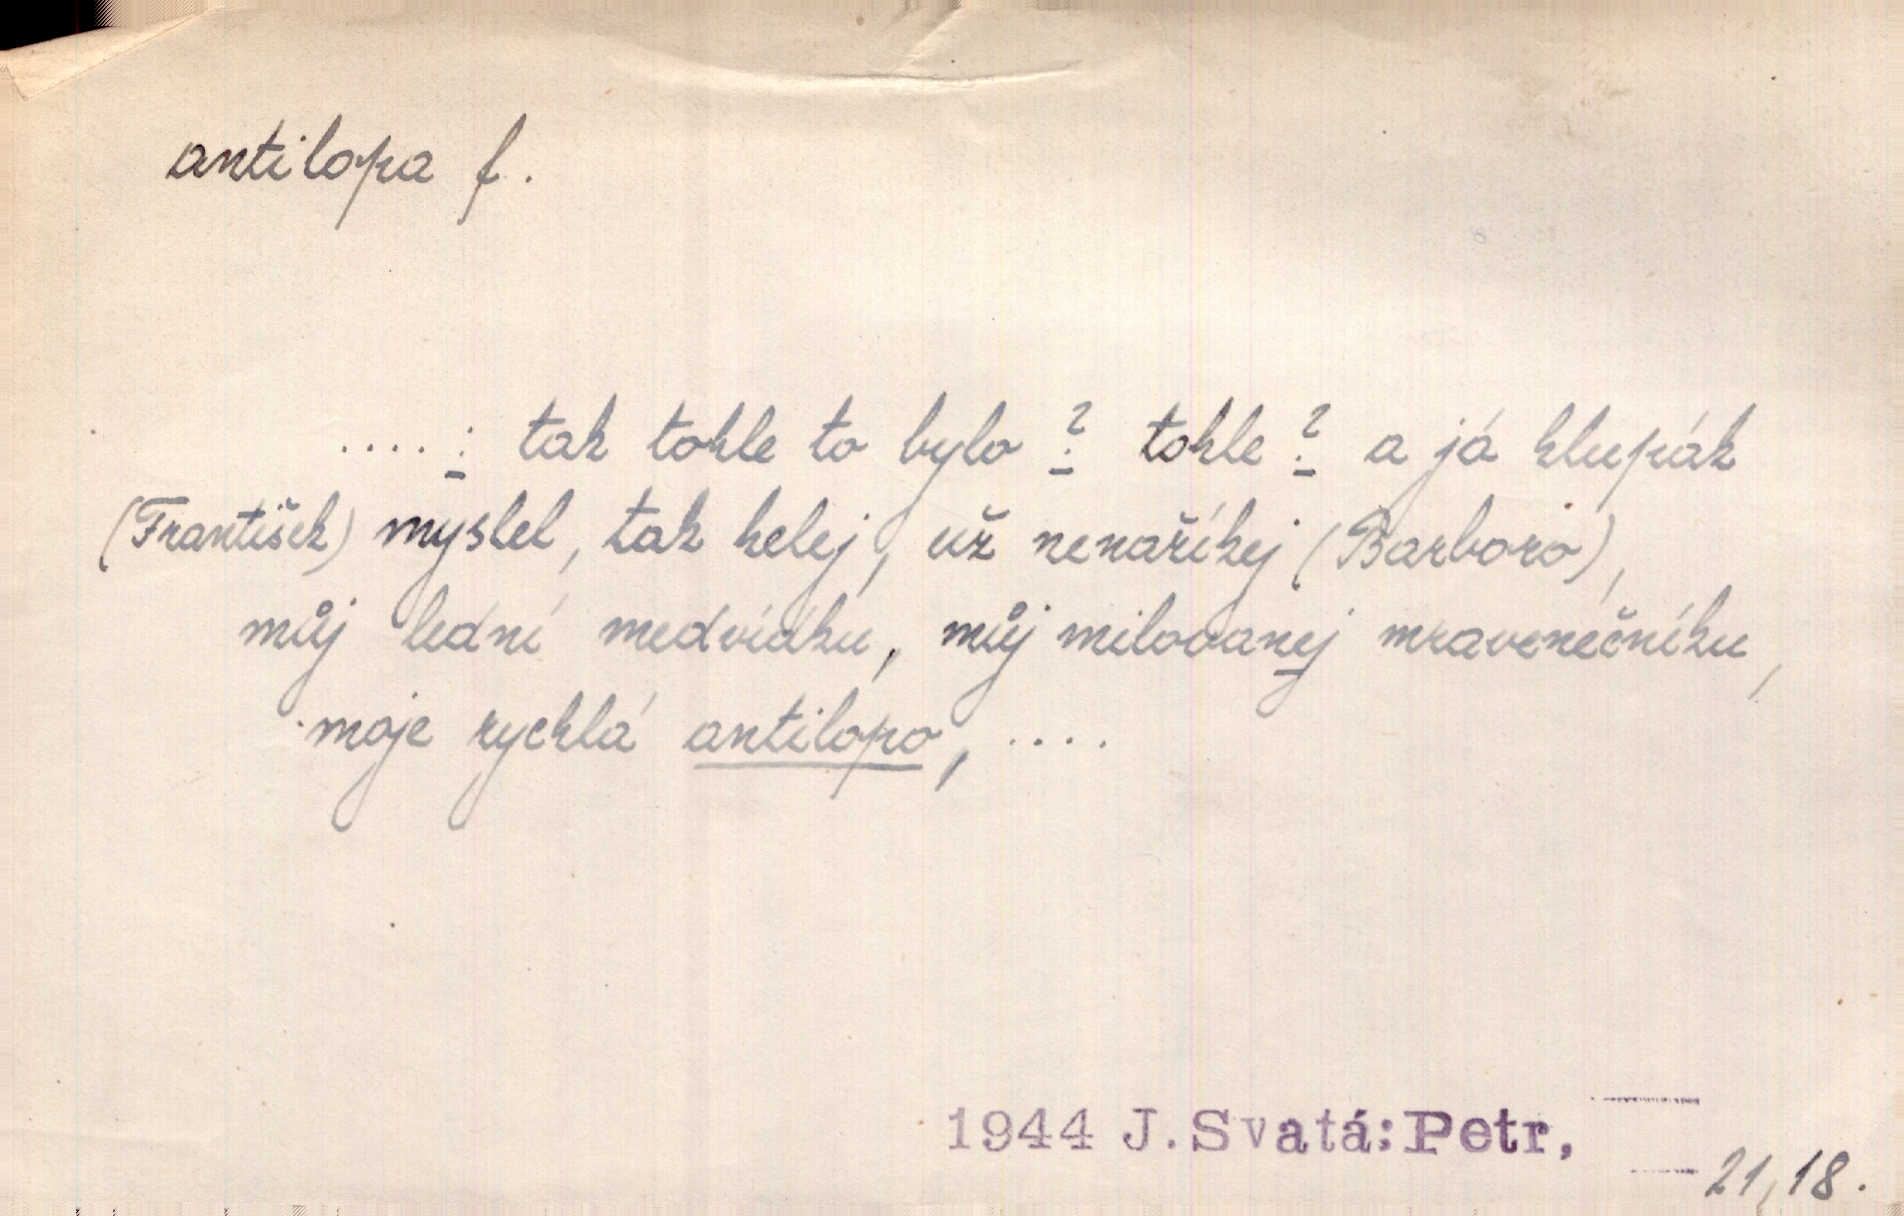 antilopa f.
....: tak tohle to bylo? tohle? a já hlupák
(František) myslel, tak helej, už nenaříkej (Barboro),
můj lední medvídku, můj milovanej mravenečníku,
moje rychlá antilopo, ....
1944 J.Svatá:Petr,
21,18.